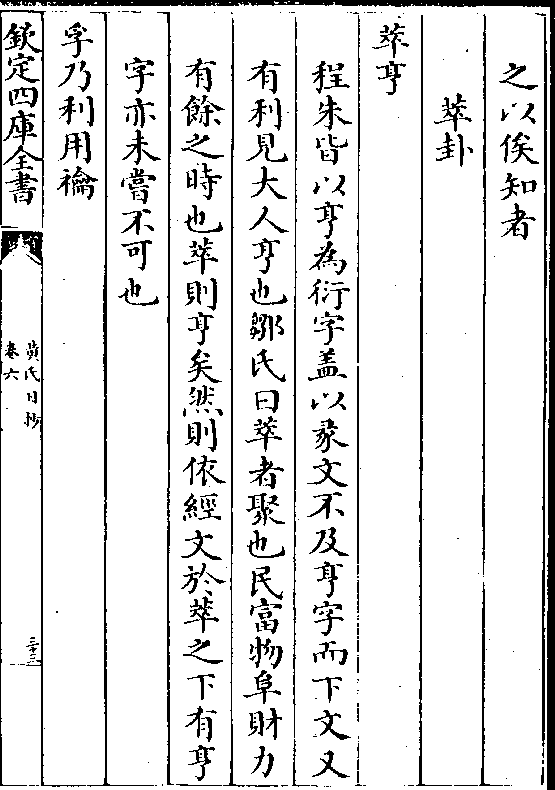 之以俟知者
萃卦
萃亨
程朱皆以亨為衍字盖以彖文不及亨字而下文又
有利見大人亨也鄒氏曰萃者聚也民富物阜財力
有餘之時也萃則亨矣然則依經文於萃之下有亨
字亦未嘗不可也
孚乃利用禴
欽定四庫全書
黄氏日抄
卷六
三十三